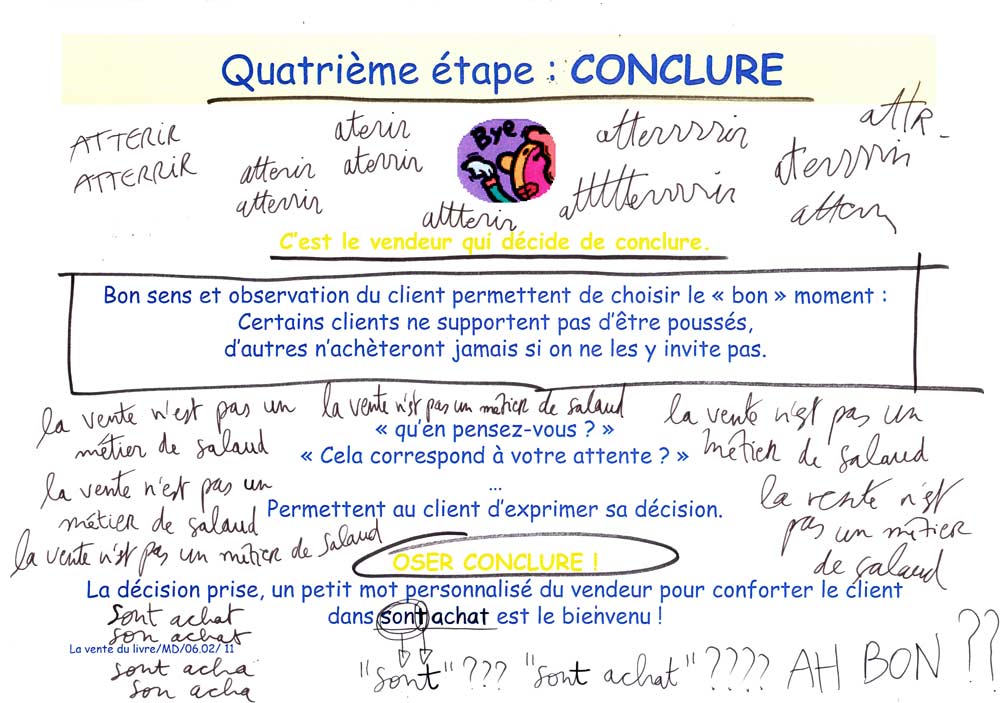 Quatrième étape : CONCLURE
ATTERIR
ATTERRIR
aterir
aterrir
atterir
atterrir
Bye
attterir
atterrrrir
atttttterrrrir
attR-
aterrrrir
C'est le vendeur qui décide de conclure.
Bon sens et observation du client permettent de choisir le « bon » moment :
Certains clients ne supportent pas d'être poussés,
d'autres n'achèteront jamais si on ne les y invite pas.
la vente n'est pas un
métier de salaud
la vente n'est pas un métier de salaud
la vente n'est pas un
métier de salaud
« qu'en pensez-vous ? »
« Cela correspond à votre attente ? »
...
la vente n'est pas un
métier de salaud
la vente n'est
pas un métier
de salaud
Permettent au client d'exprimer sa décision.
la vente n'est pas un métier de salaud
OSER CONCLURE !
La décision prise, un petit mot personnalisé du vendeur pour conforter le client
dans sont achat est le bienvenu !
sont achat
son achat
La vente du livre/MD/06.02/ 11
sont acha
son acha
"sont" ??? "sont achat" ???? AH BON ??